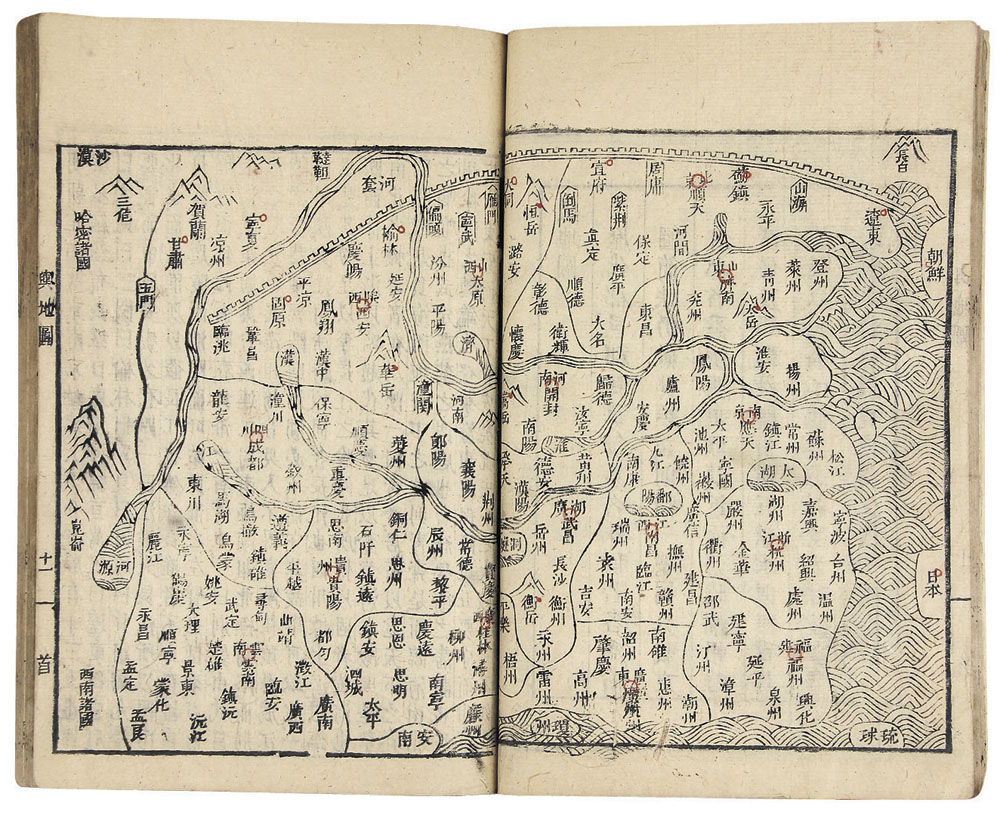 輿地圖
十一
首
長白
朝鮮
日本
琉球
遼東
山海
薊鎮
永平
居庸
北
順天
宣府
紫荆
倒馬
恒岳
大同
河間
保定
真定
廣平
順德
潞安
彰德
大名
東昌
衛輝
懷慶
登州
萊州
青州
山東
濟南
兖州
淮安
揚州
鳳陽
廬州
歸德
河南
開封
汝寧
南陽
安慶
黄州
德安
漢陽
淮
南
應天
鎮江
常州
蘇州
松江
太平
池州
寧國
徽州
太湖
湖州
嘉興
寧波
台州
紹興
浙江
杭州
嚴州
金華
衢州
處州
温州
九江
南康
饒州
鄱陽
廣信
南昌
瑞州
撫州
臨江
建昌
袁州
吉安
贛州
南安
湖廣
武昌
岳州
長沙
衡州
衡岳
永州
邵武
建寧
汀州
延平
福州
興化
泉州
漳州
南雄
韶州
肇慶
惠州
潮州
高州
雷州
瓊州
廣東
梧州
平樂
沙漠
三危
哈密諸國
賀蘭
甘肅
凉州
寧夏
韃靼
河套
榆林
慶陽
延安
偏頭
寧武
鴈門
山西
太原
汾州
平陽
玉門
固原
平凉
鳳翔
陝西
西安
臨洮
鞏昌
漢中
華岳
潼關
濟
河南
漢
龍安
潼川
保寧
順慶
夔州
鄖陽
襄陽
荆州
四川
成都
江
重慶
叙州
東川
馬湖
烏蒙
遵義
思南
石阡
銅仁
辰州
常德
洞庭
崑崙
河源
麗江
鎮雄
平越
貴州
貴陽
鎮遠
思州
黎平
寶慶
永昌
大理
姚安
武定
尋甸
都匀
鎮安
思恩
慶遠
柳州
桂林
楚雄
雲南
澂江
泗城
思明
南寧
潯州
孟定
景東
蒙化
鎮沅
臨安
廣南
太平
孟艮
沅江
廣西
安南
西南諸國